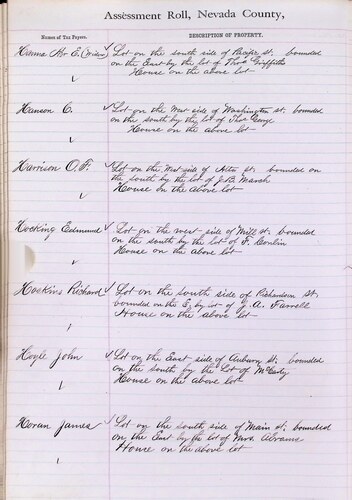 Assessment Roll, Nevada County,
Names of Tax Payers.
DESCRIPTION OF PROPERTY.
Lot on the south side of Pacific st. bounded
on the East by the lot of Thos Griffiths
House on the above lot
Hanson C.
Lot on the West side of Washington st. bounded
on the south by the lot of Thos
House on the above lot
Harrison O. F.
Lot on the West side of Alta st. bounded on
the south by the lot of J B Marsh
House on the above lot
Hocking Edmund
Lot on the west side of Mill st. bounded
on the south by the lot of F. Conlin
House on the above lot
Hoskins Richard
Lot on the south side of Richardson St.
bounded on the E. by lot of J. A. Farrell
House on the above lot
Hoyle John
Lot on the East side of Auburn St. bounded
on the south by the Lot of
House on the above lot
Horan James
Lot on the south side of Main st. bounded
on the East by the lot of Mrs. Abrams
House on the above lot